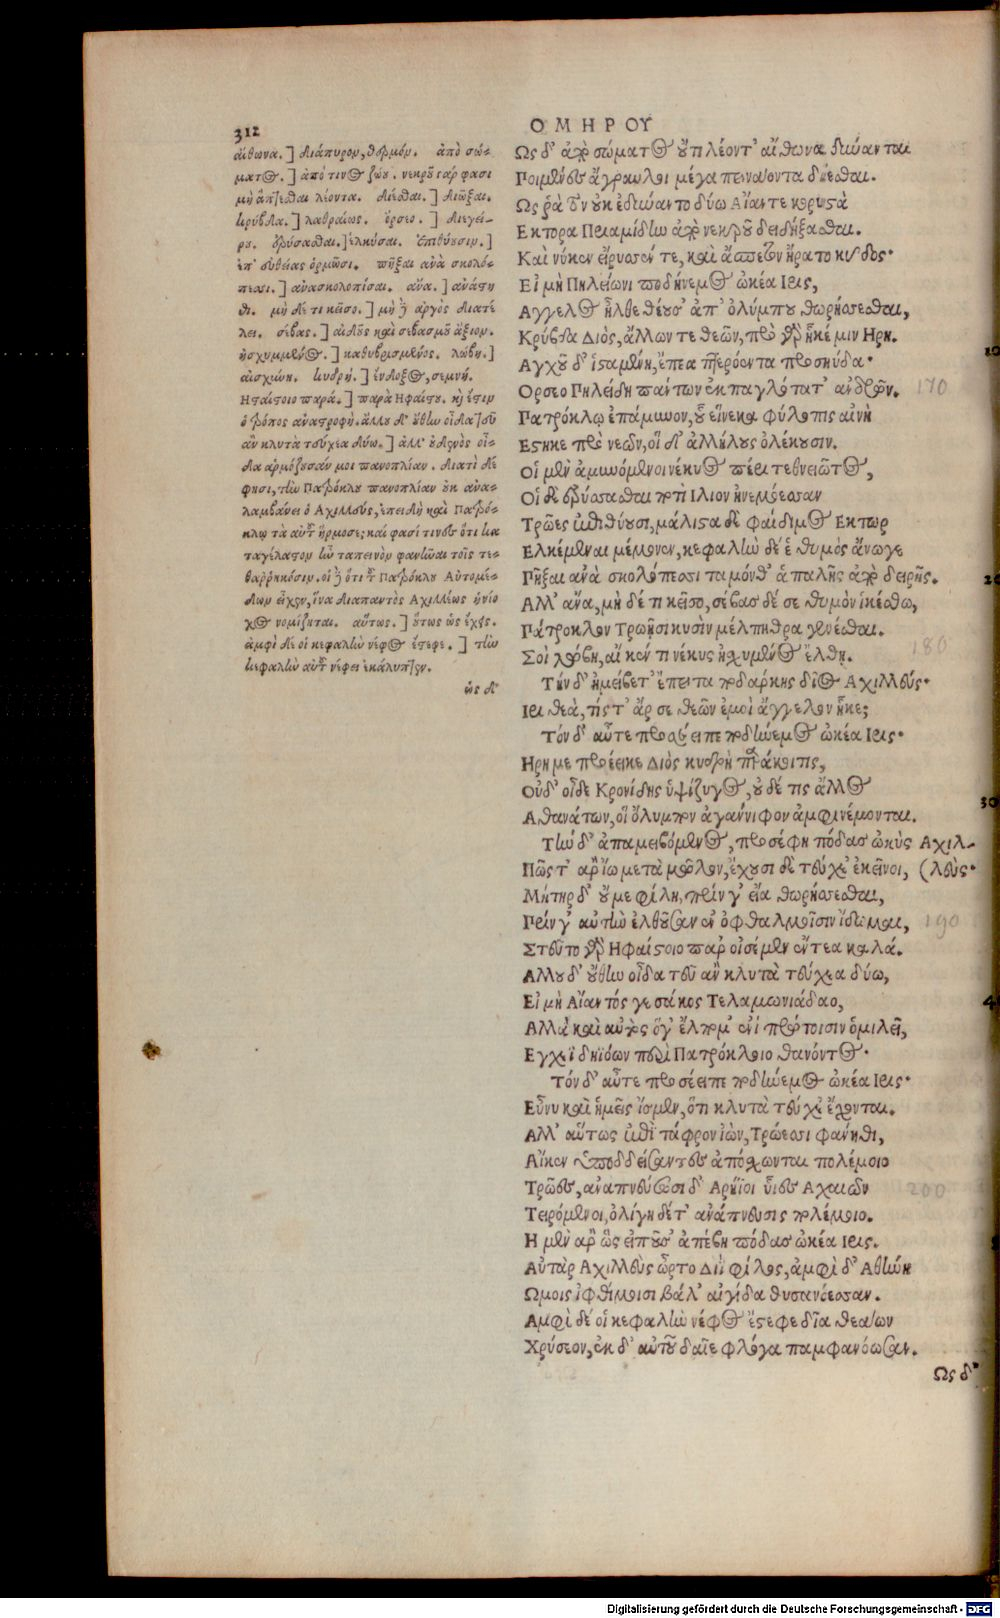 312
ΟΜΗΡΟΥ
αἴθωνα.] διάπυρον, θερμόν. ἀπὸ σώ-
ματος.] ἀπό τινος ζώου. νεκροῦ γάρ φασι
μὴ ἅπτεσθαι λέοντα. δίεσθαι.] διῶξαι.
κρύβδα.] λαθραίως. ὄρσεο.] διεγεί-
ρου. ἐρύσασθαι.] ἑλκύσαι. ἐπιθύουσιν.]
ἐπ' εὐθείας ὁρμῶσι. πῆξαι ἀνὰ σκολό-
πεσσι.] ἀνασκολοπίσαι. ἄνα.] ἀνάστη
θι. μὴ δέ τι κεῖσο.] μὴ δὲ ἀργὸς διατέ
λει. σέβας.] αἰδοῦς καὶ σεβασμοῦ ἄξιον.
ᾐσχυμμένος.] καθυβρισμένος. λώβη.]
αἰσχύνη. κυδρή.] ἔνδοξος, σεμνή.
Ηφαίστοιο παρά.] παρὰ Ηφαίστου. καὶ ἔστιν
ὁ τρόπος ἀναστροφή. ἄλλου δ' οὔθην οἶδα τοῦ
ἂν κλυτὰ τεύχεα δύω.] ἀλλ' οὐδενὸς οἶ-
δα ἁρμόζουσάν μοι πανοπλίαν. διατὶ δέ
φησι, τὴν Πατρόκλου πανοπλίαν οὐκ ἀνα-
λαμβάνει ὁ Αχιλλεύς, ἐπειδὴ καὶ Πατρό-
κλῳ τὰ αὐτοῦ ἥρμοσε; καί φασί τινες ὅτι κα
ταγέλαστον ἦν ταπεινὸν φανῆναι τοῖς τε-
θαῤῥηκόσιν. οἱ δὲ ὅτι τὴν Πατρόκλου Αὐτομέ-
δων εἶχεν, ἵνα διαπαντὸς Αχιλλέως ἡνίο
χος νομίζηται. αὕτως.] οὕτως ὡς ἔχεις.
ἀμφὶ δέ οἱ κεφαλὴν νέφος ἔστεφε.] τὴν
κεφαλὴν αὐτοῦ νέφει ἐκάλυπτεν.
ὡς δ'
Ως δ' ἀπὸ σώματος οὔτι λέοντ' αἴθωνα δύνανται
Ποιμένες ἄγραυλοι μέγα πεινάοντα δίεσθαι.
Ως ῥα τὸν οὐκ ἐδύναντο δύω Αἴαντε κορυστὰ
Εκτορα Πριαμίδην ἀπὸ νεκροῦ δειδίξασθαι.
Καὶ νύ κεν εἴρυσσέν τε, καὶ ἄσπετον ἤρατο κῦδος·
Εἰ μὴ Πηλείωνι ποδήνεμος ὠκέα Ιρις,
Αγγελος ἦλθε θέουσ' ἀπ' ὀλύμπου θωρήσσεσθαι,
Κρύβδα Διὸς, ἄλλων τε θεῶν, πρὸ γὰρ ἧκέ μιν Ηρη.
Αγχοῦ δ' ἱσταμένη, ἔπεα πτερόεντα προσηύδα·
Ορσεο Πηλείδη πάντων ἐκπαγλότατ' ἀνδρῶν. 170
Πατρόκλῳ ἐπάμυνον, οὗ εἵνεκα φύλοπις αἰνὴ
Εστηκε πρὸ νεῶν, οἱ δ' ἀλλήλους ὀλέκουσιν.
Οἱ μὲν ἀμυνόμενοι νέκυος πέρι τεθνειῶτος,
Οἱ δὲ ἐρύσσασθαι ποτὶ Ιλιον ἠνεμόεσσαν
Τρῶες ἐπιθύουσι, μάλιστα δὲ φαίδιμος Εκτωρ
Ελκέμεναι μέμονεν, κεφαλὴν δέ ἑ θυμὸς ἄνωγε
Πῆξαι ἀνὰ σκολόπεσσι ταμόνθ' ἁπαλῆς ἀπὸ δειρῆς.
Αλλ' ἄνα, μὴ δέ τι κεῖσο, σέβας δέ σε θυμὸν ἱκέσθω,
Πάτροκλον Τρωῇσι κυσὶν μέλπηθρα γενέσθαι.
Σοὶ λώβη, αἴ κέν τι νέκυς ᾐσχυμένος ἔλθῃ. 180
Τὴν δ' ἠμείβετ' ἔπειτα ποδάρκης δῖος Αχιλλεύς·
Ιρι θεὰ, τίς τ' ἄρ σε θεῶν ἐμοὶ ἄγγελον ἧκε;
Τόνδ' αὖτε προσέειπε ποδήνεμος ὠκέα Ιρις·
Ηρη με προέηκε Διὸς κυδρὴ παράκοιτις,
Οὐδ' οἶδε Κρονίδης ὑψίζυγος, οὐδέ τις ἄλλος
Αθανάτων, οἳ ὄλυμπον ἀγάννιφον ἀμφινέμονται.
Τὴν δ' ἀπαμειβόμενος, προσέφη πόδας ὠκὺς Αχιλ-
Πῶς τ' ἄρ ἴω μετὰ μῶλον, ἔχουσι δὲ τεύχε' ἐκεῖνοι, (λεύς·
Μήτηρ δ' οὔ με φίλη, πρίν γ' εἴα θωρήσσεσθαι,
Πρίν γ' αὐτὴν ἐλθοῦσαν ἐν ὀφθαλμοῖσιν ἴδωμαι, 190
Στεῦτο γὰρ Ηφαίστοιο παρ' οἰσέμεν ἔντεα καλά.
Αλλου δ' οὔθην οἶδα τεῦ ἂν κλυτὰ τεύχεα δύω,
Εἰ μὴ Αἴαντός γε σάκος Τελαμωνιάδαο,
Αλλὰ καὶ αὐτὸς ὅγ' ἔλπομ' ἐνὶ πρώτοισιν ὁμιλεῖ,
Εγχεϊ δηϊόων περὶ Πατρόκλοιο θανόντος.
Τόνδ' αὖτε προσέειπε ποδήνεμος ὠκέα Ιρις·
Εὖ νυ καὶ ἡμεῖς ἴσμεν, ὅτι κλυτὰ τεύχε' ἔχονται.
Αλλ' αὕτως ἐπὶ τάφρον ἰὼν, Τρώεσσι φάνηθι,
Αἴ κεν ὑποδδείσαντες ἀπόσχωνται πολέμοιο
Τρῶες, ἀναπνεύσωσι δ' Αρήϊοι υἷες Αχαιῶν 200
Τειρόμενοι, ὀλίγη δέ τ' ἀνάπνευσις πολέμοιο.
Η μὲν ἄρ ὣς εἰποῦσ' ἀπέβη πόδας ὠκέα Ιρις.
Αὐτὰρ Αχιλλεὺς ὦρτο Διῒ φίλος, ἀμφὶ δ' Αθήνη
Ωμοις ἰφθίμοισι βάλ' αἰγίδα θυσανόεσσαν.
Αμφὶ δέ οἱ κεφαλὴν νέφος ἔστεφε δῖα θεάων
Χρύσεον, ἐκ δ' αὐτοῦ δαῖε φλόγα παμφανόωσαν.
Ως δ'
Digitalisierung gefördert durch die Deutsche Forschungsgemeinschaft - DFG